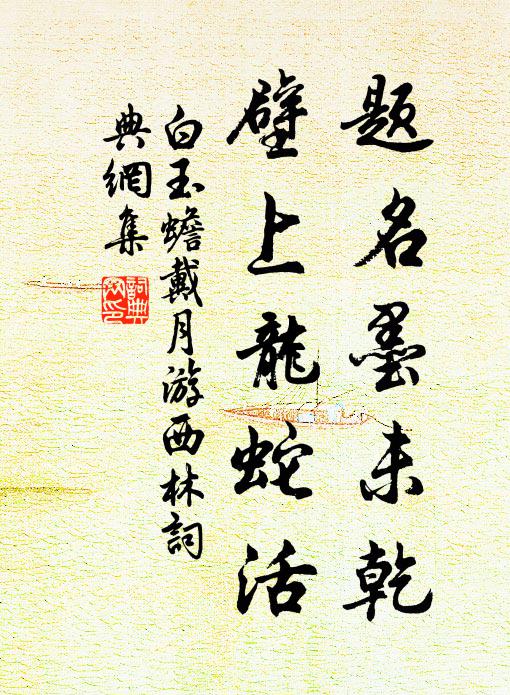 題名墨未乾
壁上龍蛇活
白玉蟾戴月游西林詞
典網集
詞典網印